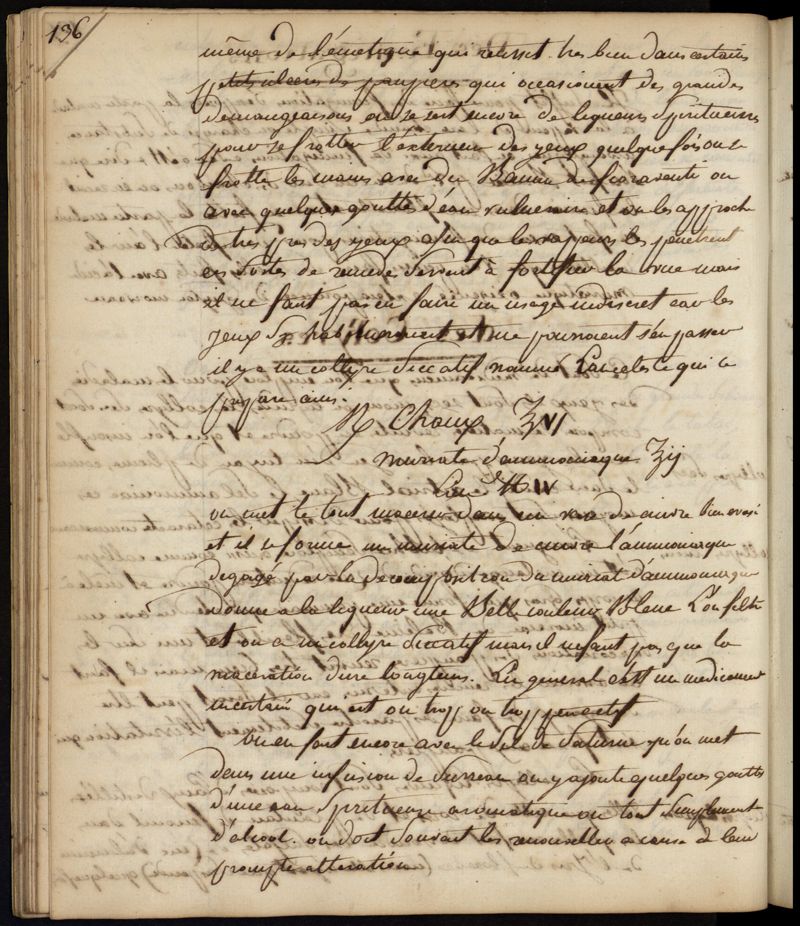 136
même de l'émetique qui reussit tres bien dans certains
petits ulceres des paupieres qui occasionent des grandes
demangeaisons on se sert encore de liqueurs Spiritueuses
pour se frotter l'exterieur des yeux quelque fois on se
frotte les mains avec du Baume de fioraventi ou
avec quelques gouttes d'eau vulneraire et on les approche
tres pres des yeux afin que les vapeurs les penetrent
ces sortes de remedes servent à fortifier la vue mais
il ne faut pas en faire un usage indiscret car les
yeux s'y habitueroient et ne pourroient s'en passer
il y a un collyre siccatif nommé Eau celeste qui se
prepare ainsi.
R Chaux ʒVI
muriate d'ammoniaque ʒij
Eau IV
on met le tout macerer dans un vase de cuivre bien evasé
et il se forme un muriate de cuivre l'ammoniaque
degagé par la decomposition du muriat d'ammoniaque
donne a la liqueur une Belle couleur Bleue L'on filtre
et on a un collyre siccatif mais il ne faut pas que la
maceration dure longtems. En general c'est un medicament
incertain qui est ou trop ou trop peu actif
on en fait encore avec le Sel de Saturne qu'on met
dans une infusion de Sureau on y ajoute quelques gouttes
d'une eau Spiritueuse aromatique ou tout simplement
d'alcool. on doit souvent les renouveller a cause de leur
prompte alteration